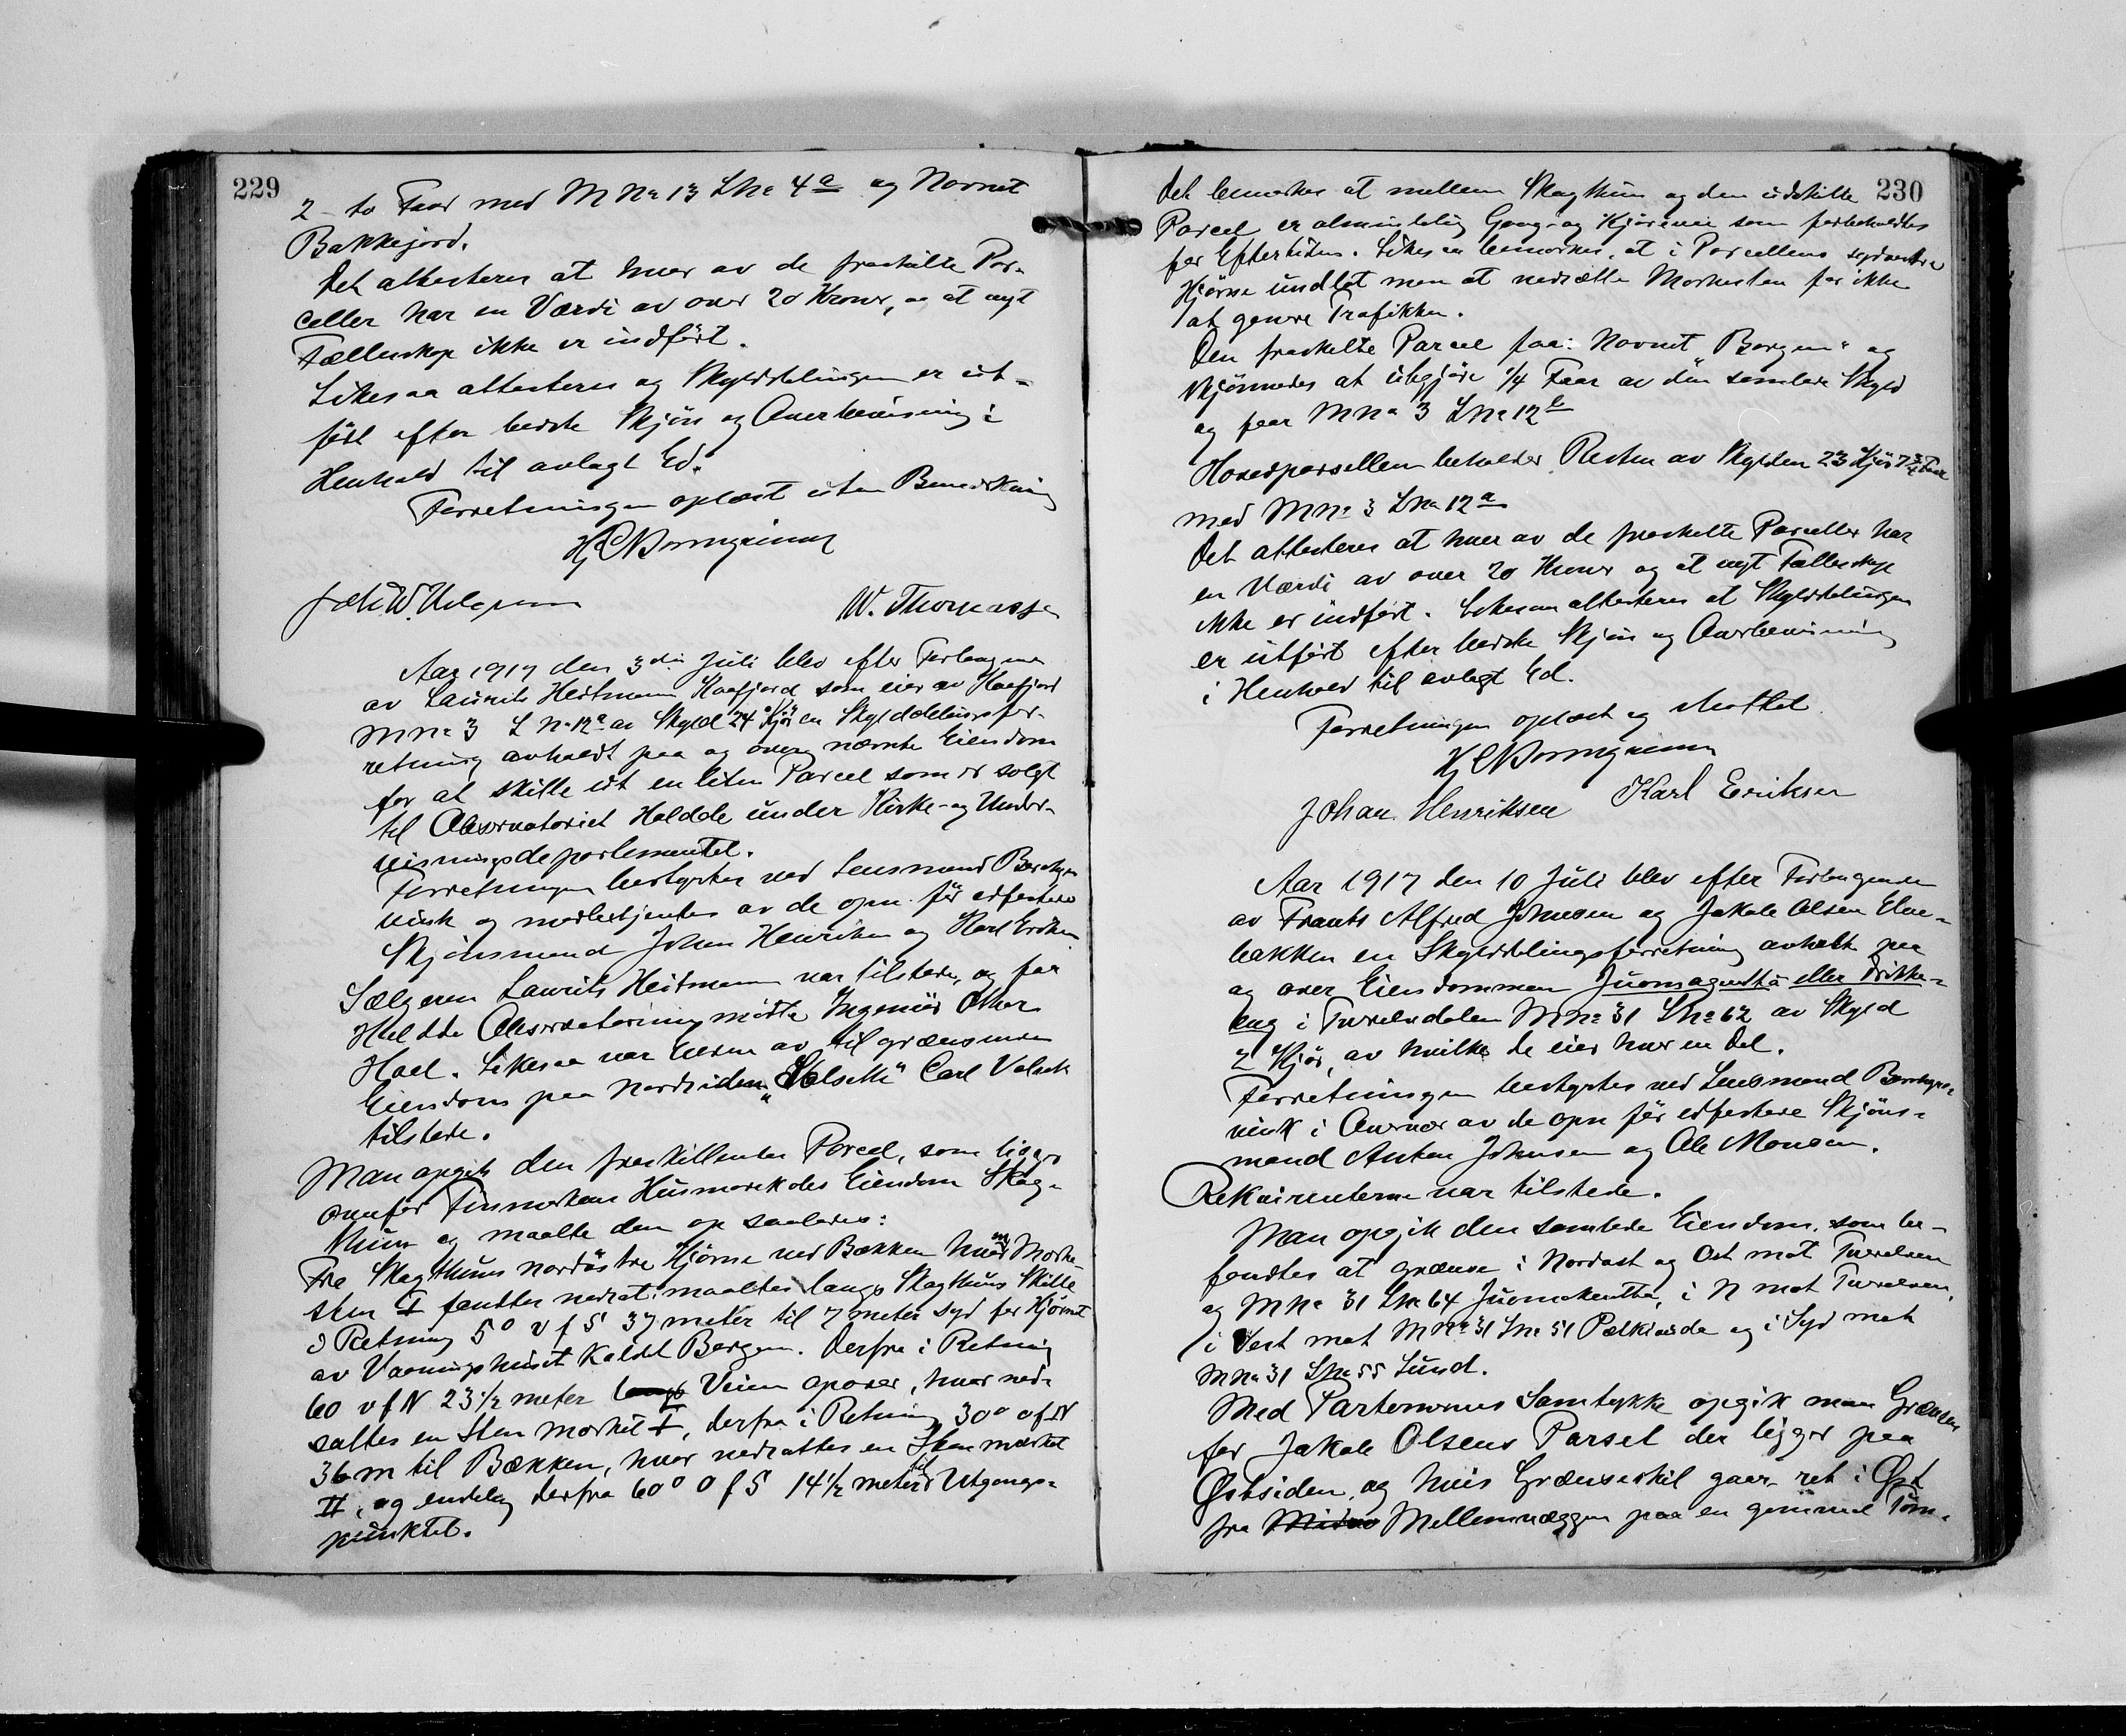 229
2 - to Faar med M No 13 L No 4a og Navnet
Bakkejord.
Det attesteres at hver av de fraskilte Par-
celler har en Værdi av over 20 Kroner, og at nyt
Fælleskap ikke er indført.
Likesaa attesteres og Skylddelingen er ut-
ført efter bedste Skjøn og Overbevisning i
Henhold til avlagt Ed.
Forretningen oplæst uten Bemerkning
W. Thomassen
Aar 1917 den 3die Juli blev efter Forlangende
av Laurits Heitmann Kaafjord som eier av Kaafjord
M No 3 L No 12a av Skyld 24 Kjør en Skylddelingsfor-
retning avholdt paa og over nævnte Eiendom
for at skille ut en liten Parcel som er solgt
til Observatoriet Haldde under Kirke- og Under-
visningsdepartementet.
Forretningen bestyrtes ved Lensmand Borchgre-
vink og medbetjentes av de opn. før edfestede
Skjønsmænd Johan Henriksen og Karl Eriksen
Sælgeren Laurits Heitmann var tilstede, og for
Haldde Observatorium møtte Ingeniør Othar
Hoel. Likesaa var Eieren av tilgrænsende
Eiendom paa Nordsiden "Volseth" Carl Volseth
tilstede.
Man opgik den fraskillendes Parcel, som ligger
ovenfor Finmarkens Husmorskoles Eiendom Skog-
thun og maalte den op saaledes:
Fra Skogthuns nordøstre Hjørne ved Bækken hvor en Merke-
sten I fandtes nedsat maaltes langs Skogthuns Skille
i Retning 5° v f S 37 meter til 7 meter syd for Hjørnet
av Vaaningshuset kaldt Borgen. Derfra i Retning
60 v f N 23 1/2 meter langs Veien opover, hvor ned-
sattes en Sten merket I, derfra i Retning 30° o f N
36 m til Bækken, hvor nedsattes en Sten merket
II, og endelig derfra 60° o f S 14 1/2 meter til Utgangs-
punktet.
230
Det bemerkes at mellem Skogthun og den utskilte
Parcel er almindelig Gang- og Kjørevei som forbeholdtes
for Eftertiden. Likesaa bemerkes, at i Parcellens sydvestre
Hjørne undlot man at nedsætte Merkesten for ikke
at genere Trafikken.
Den fraskilte Parcel faar Navnet "Borgen" og
skjønnedes at utgjøre 1/4 Faar av den samlede Skyld
og faar M No 3 L No 12b
Hovedparsellen beholder Resten av Skylden 23 Kjør 7 3/4 Faar
med M No 3 L No 12a
Det attesteres at hver av de fraskilte Parceller har
en Værdi av over 20 Kroner og at nyt Fælleskap
ikke er indført. Likesaa attesteres at Skylddelingen
er utført efter bedste Skjøn og Overbevisning
i Henhold til avlagt Ed.
Forretningen oplæst og sluttet
Johan Henriksen Karl Eriksen
Aar 1917 den 10 Juli blev efter Forlangende
av Frants Alfred Johnsen og Jakob Olsen Elve-
bakken en Skylddelingsforretning avholdt paa
og over Eiendommen Juomaguotta eller Drikke-
eng i Tverelvdalen M No 31 L No 62 av Skyld
2 Kjør, av hvilke de eier hver en Del.
Forretningen bestyrtes ved Lensmand Borchgre-
vink i Overvær av de opn før edfestede Skjøns-
mænd Anton Johnsen og Ole Monsen.
Rekvirenterne var tilstede.
Man opgik den samlede Eiendom, som be-
fandtes at grænse i Nordost og Ost mot Tverelven
og M No 31 L No 64 i N mot Tverelven,
i Vest mot M No 31 L No 51 og i Syd mot
M No 31 L No 55 Lund.
Med Parternes Samtykke opgik man Grænsen
for Jakob Olsens Parsel der ligger paa
Østsiden, og hvis Grænseskil gaar ret i Øst
fra Mellemvæggen paa en gammel Tøm-